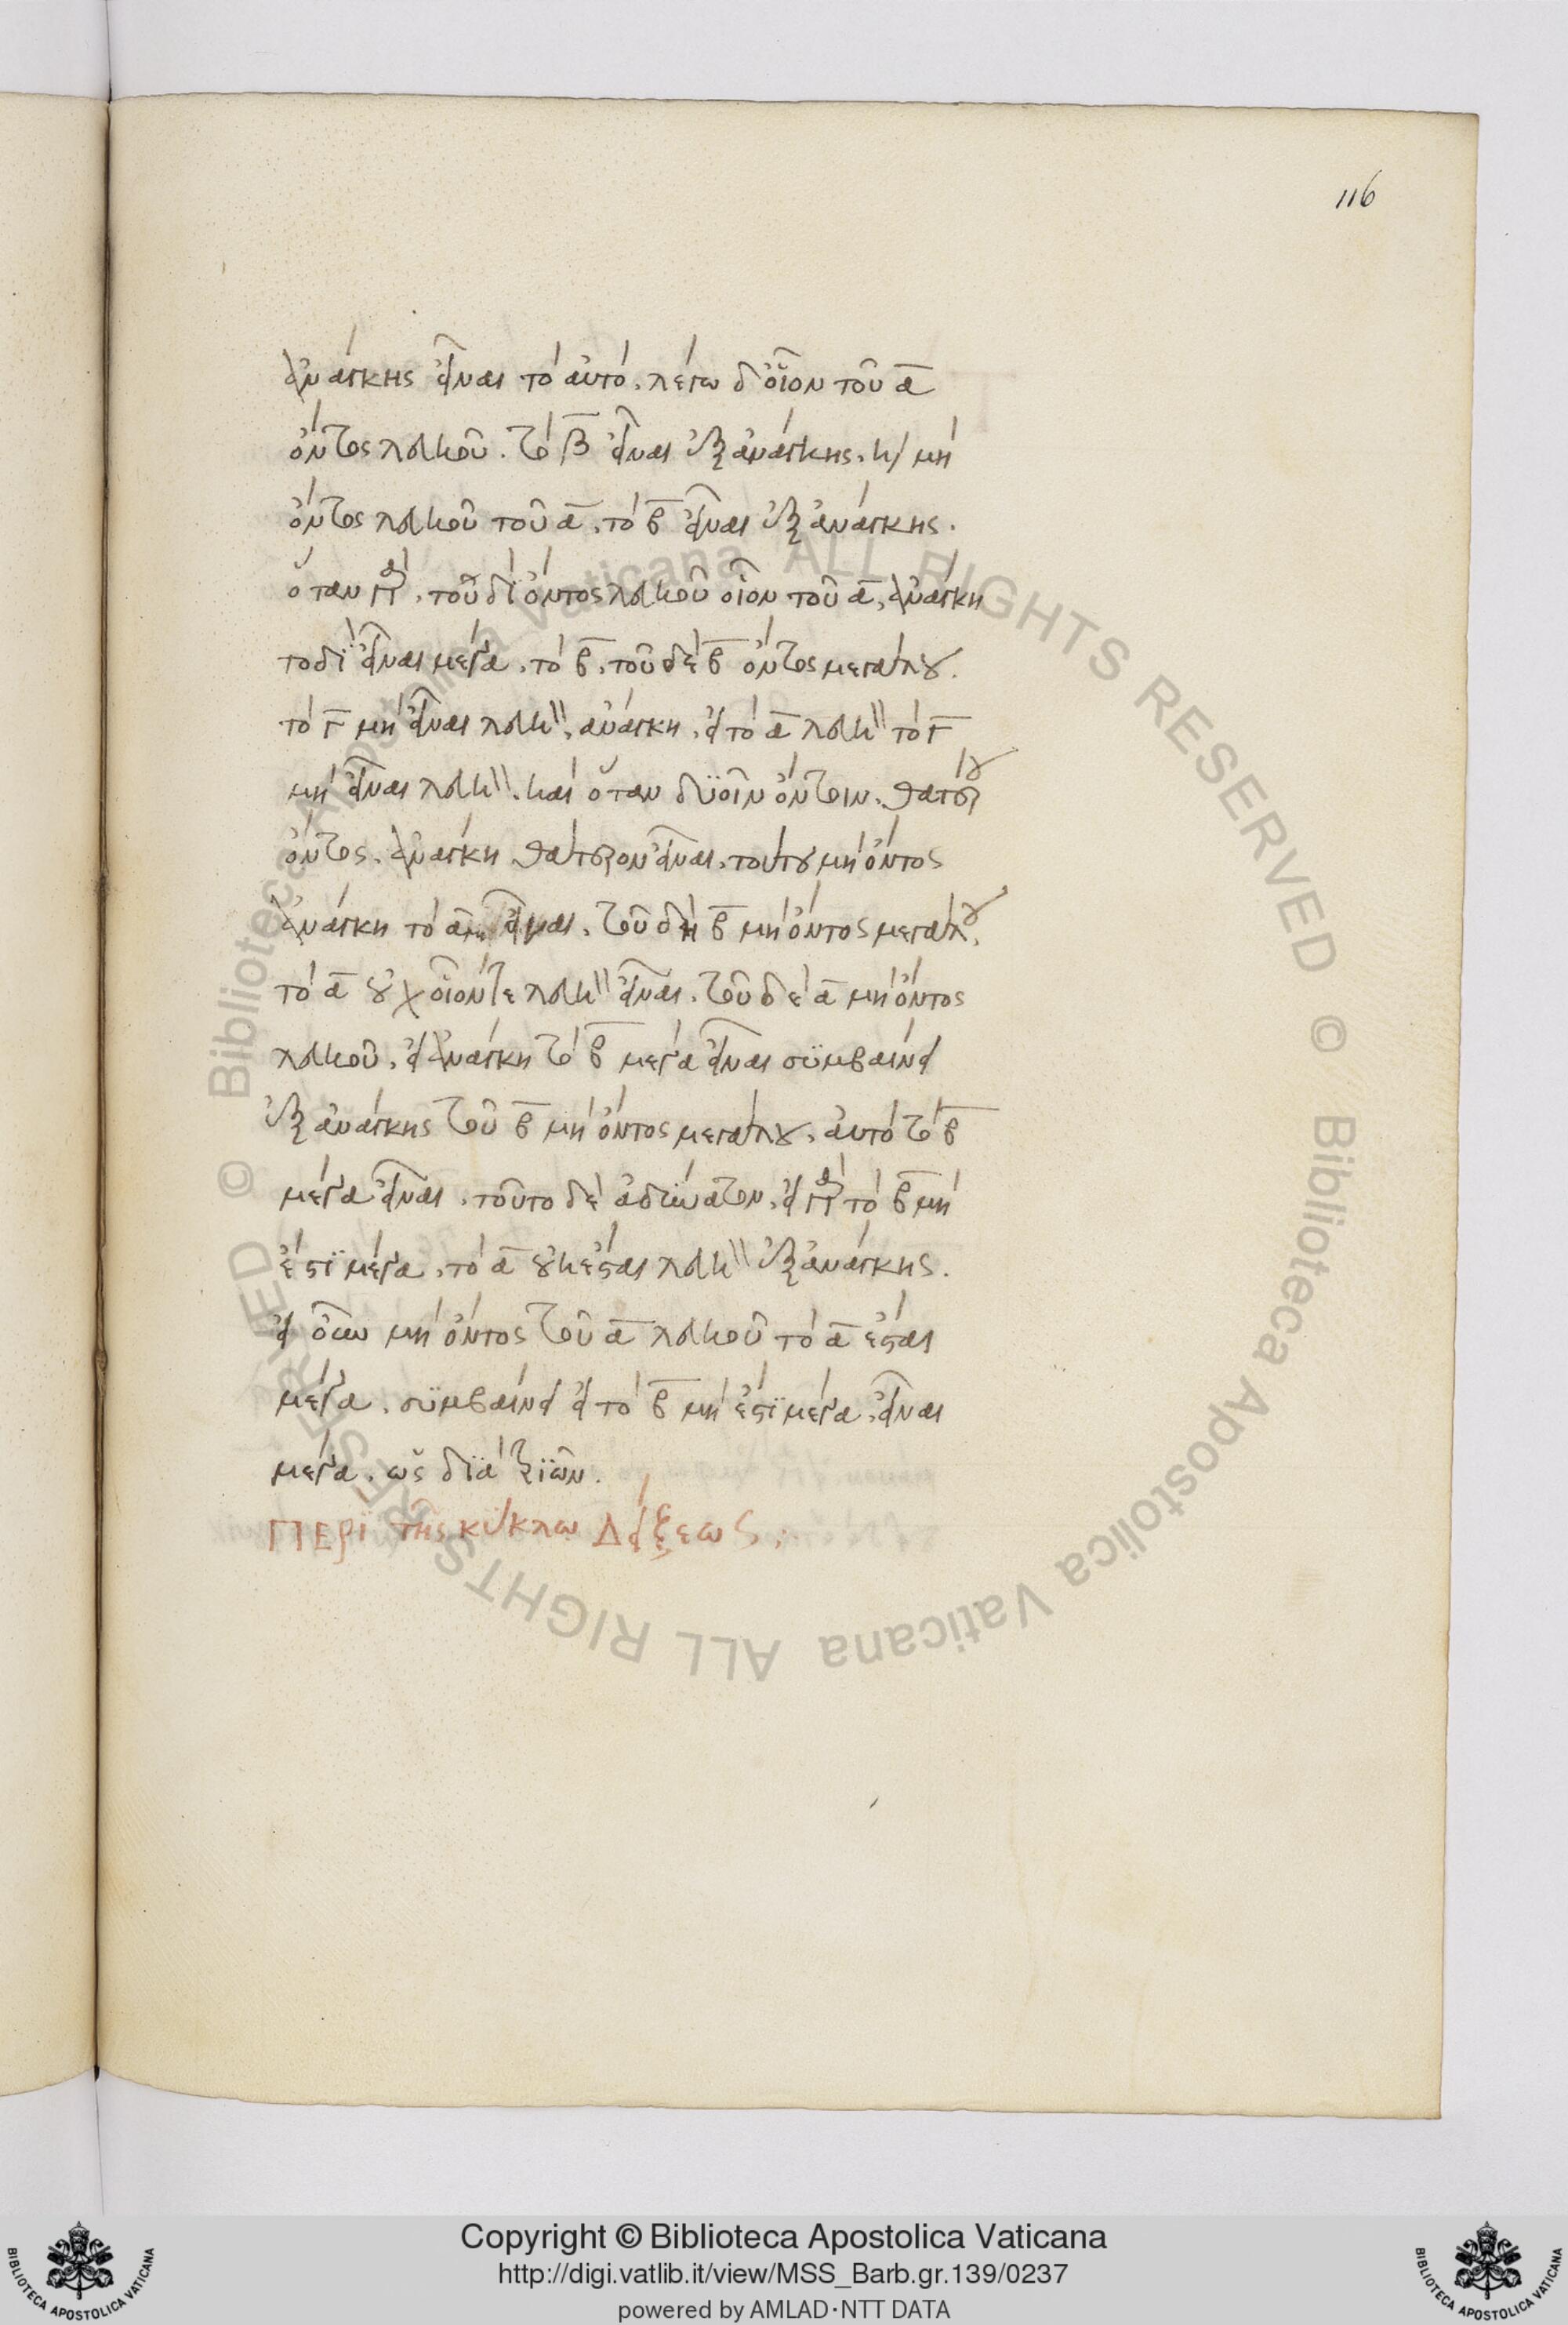 116
ἀνάγκης εἶναι τὸ αὐτό. λέγω δ' οἷον τοῦ α
ὄντος λευκοῦ. τὸ β εἶναι ἐξ ἀνάγκης. κ/ μὴ
ὄντος λευκοῦ τοῦ α, τὸ β εἶναι ἐξ ἀνάγκης.
ὅταν γὰρ, τοῦ δϊ ὄντος λευκοῦ οἷον τοῦ α, ἀνάγκη
τοδὶ εἶναι μέγα, τὸ β, τοῦ δὲ β ὄντος μεγάλου.
τὸ γ μὴ εἶναι λευκ, ἀνάγκη, εἰ τὸ α λευκ τὸ γ
μὴ εἶναι λευκ. καὶ ὅταν δϋοῖν ὄντοιν. θατέρου
ὄντος. ἀνάγκη θάτερον εἶναι. τούτου μὴ ὄντος
ἀνάγκη τὸ α μὴ εἶναι. τοῦ δὴ β μὴ ὄντος μεγάλου.
τὸ α οὐχ οἷόν τε λευκ εἶναι. τοῦ δὲ α μὴ ὄντος
λευκοῦ, εἰ ἀνάγκη τὸ β μέγα εἶναι συμβαίνει
ἐξ ἀνάγκης τοῦ β μὴ ὄντος μεγάλου, αὐτὸ τὸ β
μέγα εἶναι. τοῦτο δὲ ἀδύνατον. εἰ γὰρ τὸ β μὴ
ἐστὶ μέγα, τὸ α οὐκ ἔσται λευκ ἐξ ἀνάγκης.
εἰ οὖν μὴ ὄντος τοῦ α λευκοῦ τὸ α ἔσται
μέγα. συμβαίνει εἰ τὸ β μὴ ἐστὶ μέγα, εἶναι
μέγα. ὡς διὰ τριῶν.
ΠΕρὶ τῆς κύκλω Δείξεως:
Copyright © Biblioteca Apostolica Vaticana
http://digi.vatlib.it/view/MSS_Barb.gr.139/0237
powered by AMLAD·NTT DATA
BIBLIOTECA APOSTOLICA VATICANA
BIBLIOTECA APOSTOLICA VATICANA
© Biblioteca Apostolica Vaticana ALL RIGHTS RESERVED © Biblioteca Apostolica Vaticana ALL RIGHTS RESERVED